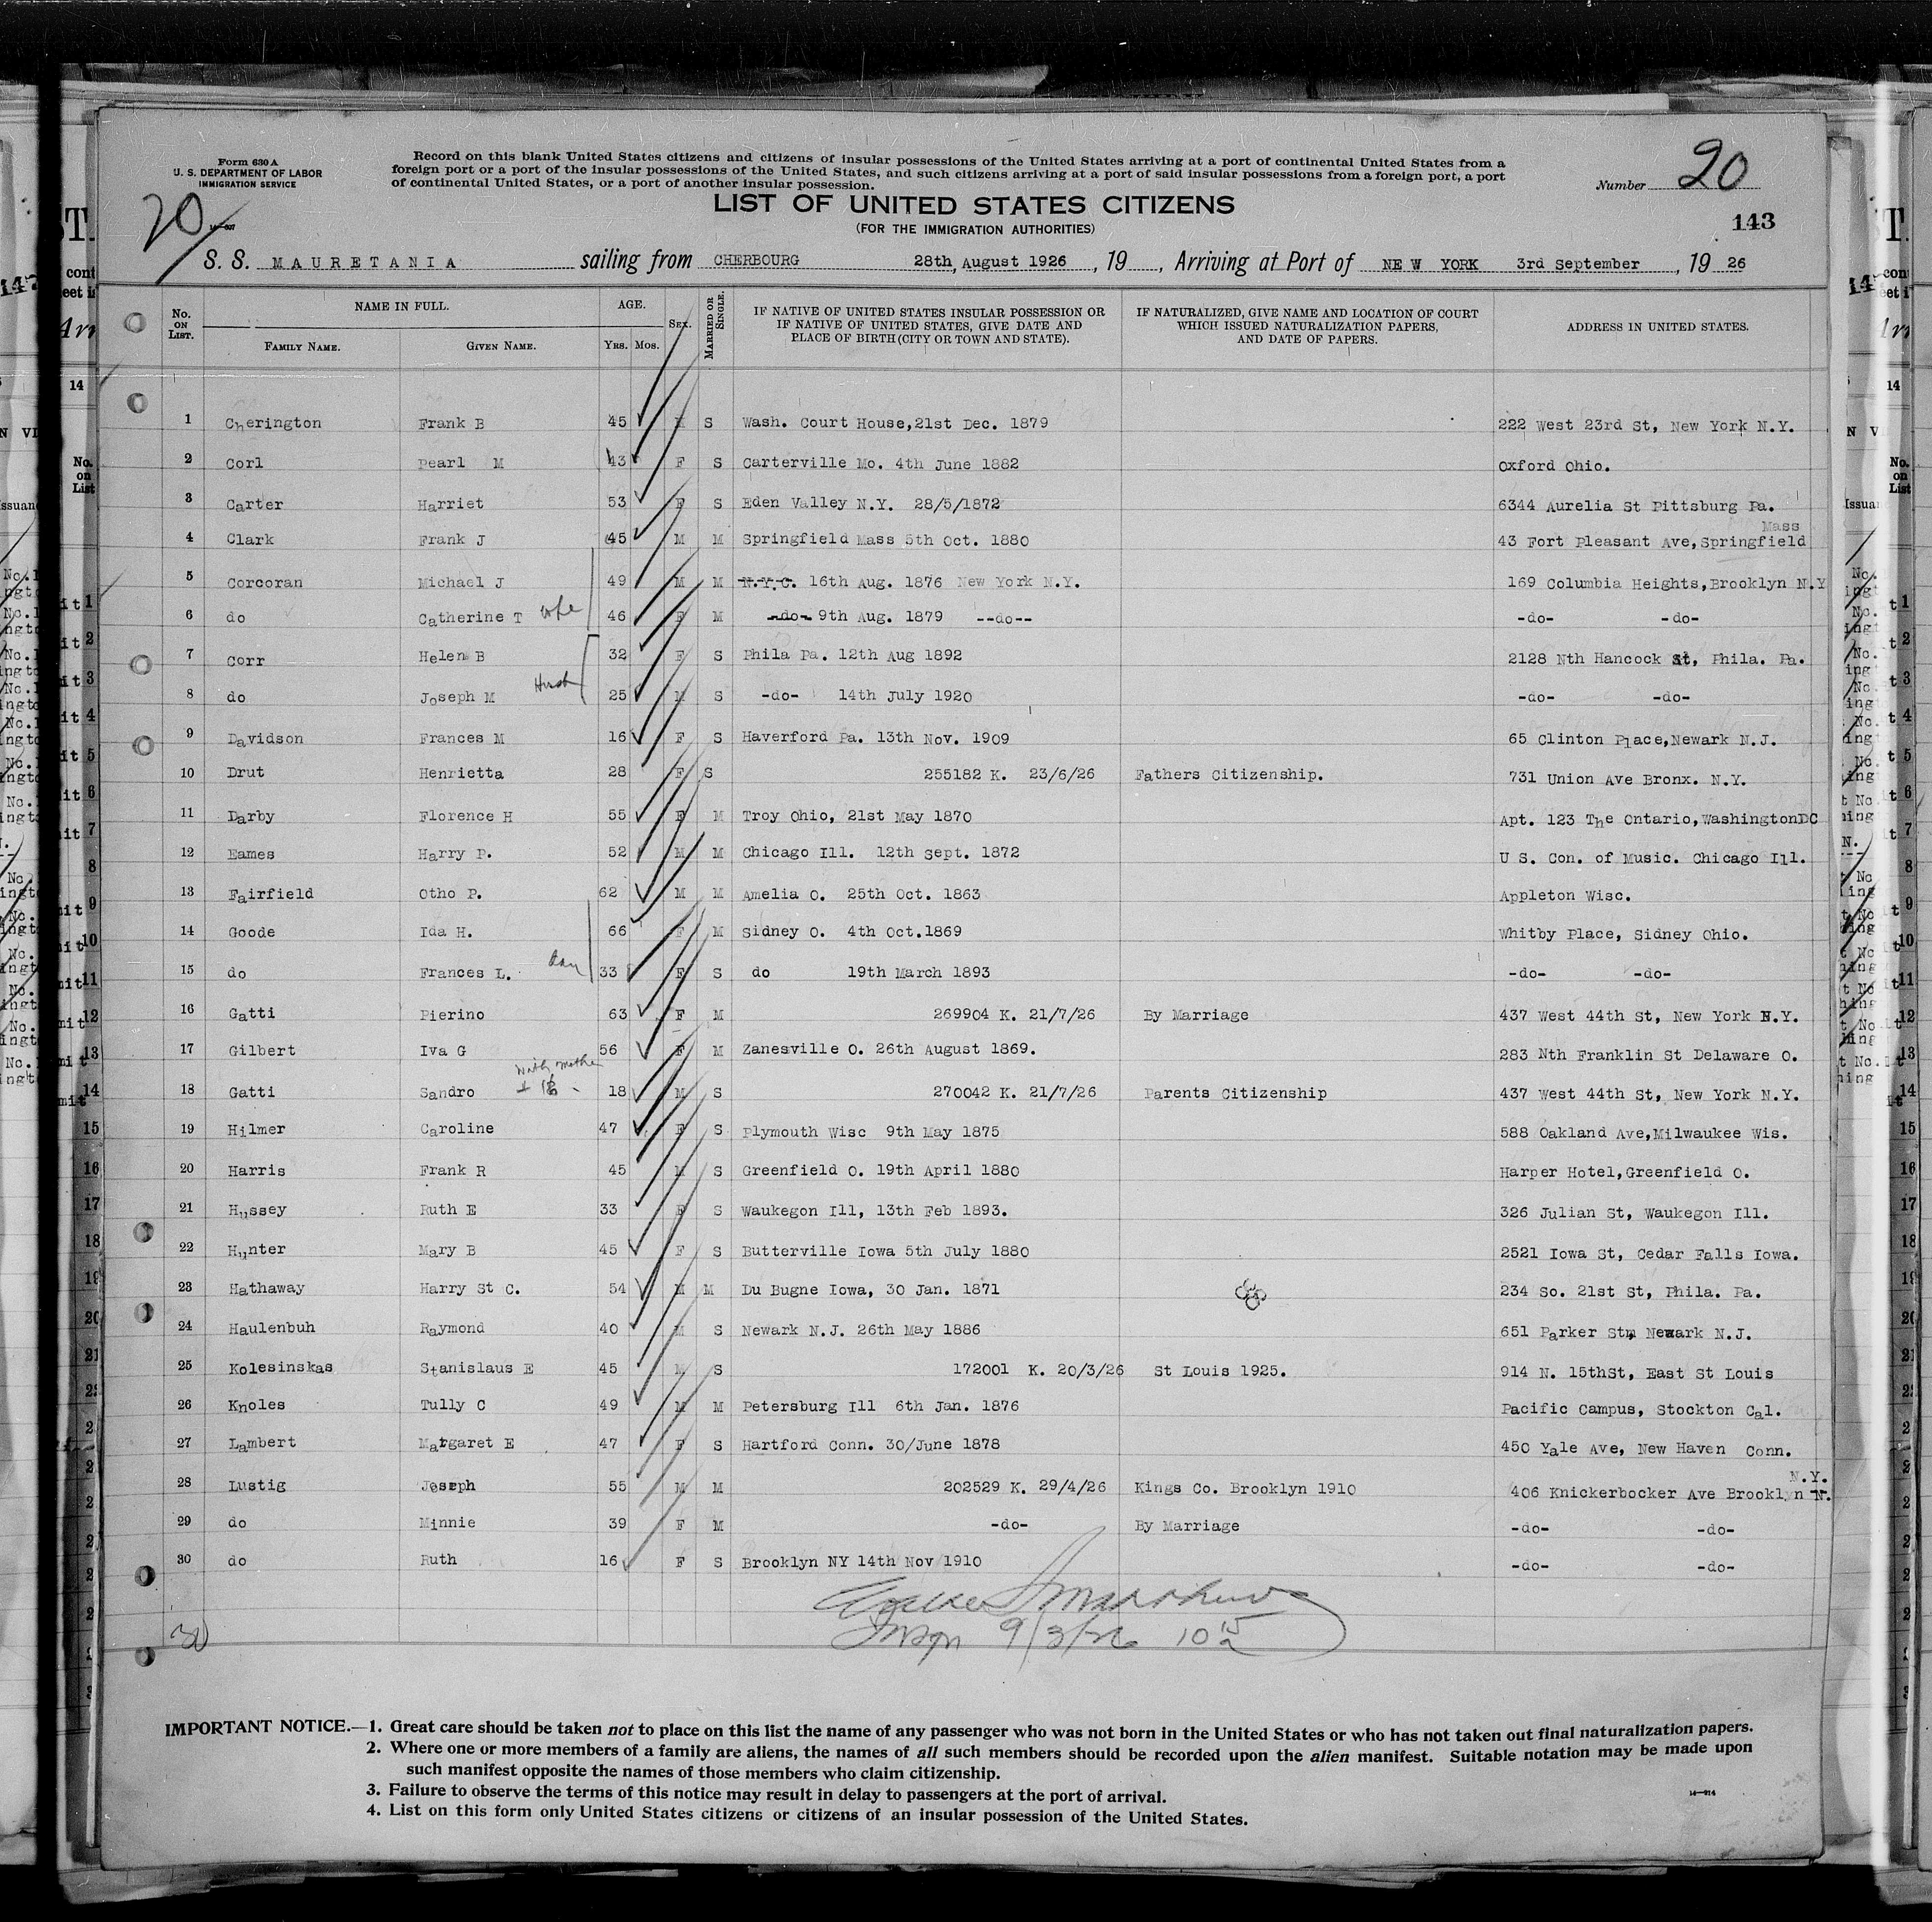 Form 630 A
U. S. DEPARTMENT OF LABOR
IMMIGRATION SERVICE
Record on this blank United States citizens and citizens of insular possessions of the United States arriving at a port of continental United States from a
foreign port or a port of the insular possessions of the United States, and such citizens arriving at a port of said insular possessions from a foreign port, a port
of continental United States, or a port of another insular possession.
Number 20
20
LIST OF UNITED STATES CITIZENS
(FOR THE IMMIGRATION AUTHORITIES)
143
S. S. MAURETANIA sailing from CHERBOURG 28th, August 1926, 19 , Arriving at Port of NEW YORK 3rd September, 19 26
No. ON LIST. NAME IN FULL. FAMILY NAME. GIVEN NAME. AGE. YRS. MOS. SEX. MARRIED OR SINGLE. IF NATIVE OF UNITED STATES INSULAR POSSESSION OR IF NATIVE OF UNITED STATES, GIVE DATE AND PLACE OF BIRTH (CITY OR TOWN AND STATE). IF NATURALIZED, GIVE NAME AND LOCATION OF COURT WHICH ISSUED NATURALIZATION PAPERS, AND DATE OF PAPERS. ADDRESS IN UNITED STATES.
1 Cherington Frank B 45 M S Wash. Court House,21st Dec. 1879 222 West 23rd St, New York N.Y.
2 Corl Pearl M 43 F S Carterville Mo. 4th June 1882 Oxford Ohio.
3 Carter Harriet 53 F S Eden Valley N.Y. 28/5/1872 6344 Aurelia St Pittsburg Pa.
4 Clark Frank J 45 M M Springfield Mass 5th Oct. 1880 43 Fort Pleasant Ave,Springfield Mass
5 Corcoran Michael J 49 M M N.Y.C. 16th Aug. 1876 New York N.Y. 169 Columbia Heights,Brooklyn N.Y
6 do Catherine T wife 46 F M -do- 9th Aug. 1879 --do-- -do- -do-
7 Corr Helen B 32 F S Phila Pa. 12th Aug 1892 2128 Nth Hancock St, Phila. Pa.
8 do Joseph M 25 M S -do- 14th July 1920 -do- -do-
9 Davidson Frances M 16 F S Haverford Pa. 13th Nov. 1909 65 Clinton Place,Newark N.J.
10 Drut Henrietta 28 F S 255182 K. 23/6/26 Fathers Citizenship. 731 Union Ave Bronx. N.Y.
11 Darby Florence H 55 F M Troy Ohio, 21st May 1870 Apt. 123 The Ontario,WashingtonDC
12 Eames Harry P. 52 M M Chicago Ill. 12th Sept. 1872 U S. Con. of Music. Chicago Ill.
13 Fairfield Otho P. 62 M M Amelia O. 25th Oct. 1863 Appleton Wisc.
14 Goode Ida H. 66 F M Sidney O. 4th Oct.1869 Whitby Place, Sidney Ohio.
15 do Frances L. 33 F S do 19th March 1893 -do- -do-
16 Gatti Pierino 63 F M 269904 K. 21/7/26 By Marriage 437 West 44th St, New York N.Y.
17 Gilbert Iva G 56 F M Zanesville O. 26th August 1869. 283 Nth Franklin St Delaware O.
With mother
18 Gatti Sandro 18 M S 270042 K. 21/7/26 Parents Citizenship 437 West 44th St, New York N.Y.
19 Hilmer Caroline 47 F S Plymouth Wisc 9th May 1875 588 Oakland Ave,Milwaukee Wis.
20 Harris Frank R 45 M S Greenfield O. 19th April 1880 Harper Hotel,Greenfield O.
21 Hussey Ruth E 33 F S Waukegon Ill, 13th Feb 1893. 326 Julian St, Waukegon Ill.
22 Hunter Mary B 45 F S Butterville Iowa 5th July 1880 2521 Iowa St, Cedar Falls Iowa.
23 Hathaway Harry St C. 54 M M Du Bugne Iowa, 30 Jan. 1871 234 So. 21st St, Phila. Pa.
24 Haulenbuh Raymond 40 M S Newark N.J. 26th May 1886 651 Parker St, Newark N.J.
25 Kolesinskas Stanislaus E 45 M S 172001 K. 20/3/26 St Louis 1925. 914 N. 15thSt, East St Louis
26 Knoles Tully C 49 M M Petersburg Ill 6th Jan. 1876 Pacific Campus, Stockton Cal.
27 Lambert Margaret E 47 F S Hartford Conn. 30/June 1878 450 Yale Ave, New Haven Conn.
28 Lustig Joseph 55 M M 202529 K. 29/4/26 Kings Co. Brooklyn 1910 406 Knickerbocker Ave Brooklyn N. N.Y.
29 do Minnie 39 F M -do- By Marriage -do- -do-
30 do Ruth 16 F S Brooklyn NY 14th Nov 1910 -do- -do-
30
9/3/26 10
IMPORTANT NOTICE.—1. Great care should be taken not to place on this list the name of any passenger who was not born in the United States or who has not taken out final naturalization papers.
2. Where one or more members of a family are aliens, the names of all such members should be recorded upon the alien manifest. Suitable notation may be made upon
such manifest opposite the names of those members who claim citizenship.
3. Failure to observe the terms of this notice may result in delay to passengers at the port of arrival.
4. List on this form only United States citizens or citizens of an insular possession of the United States.